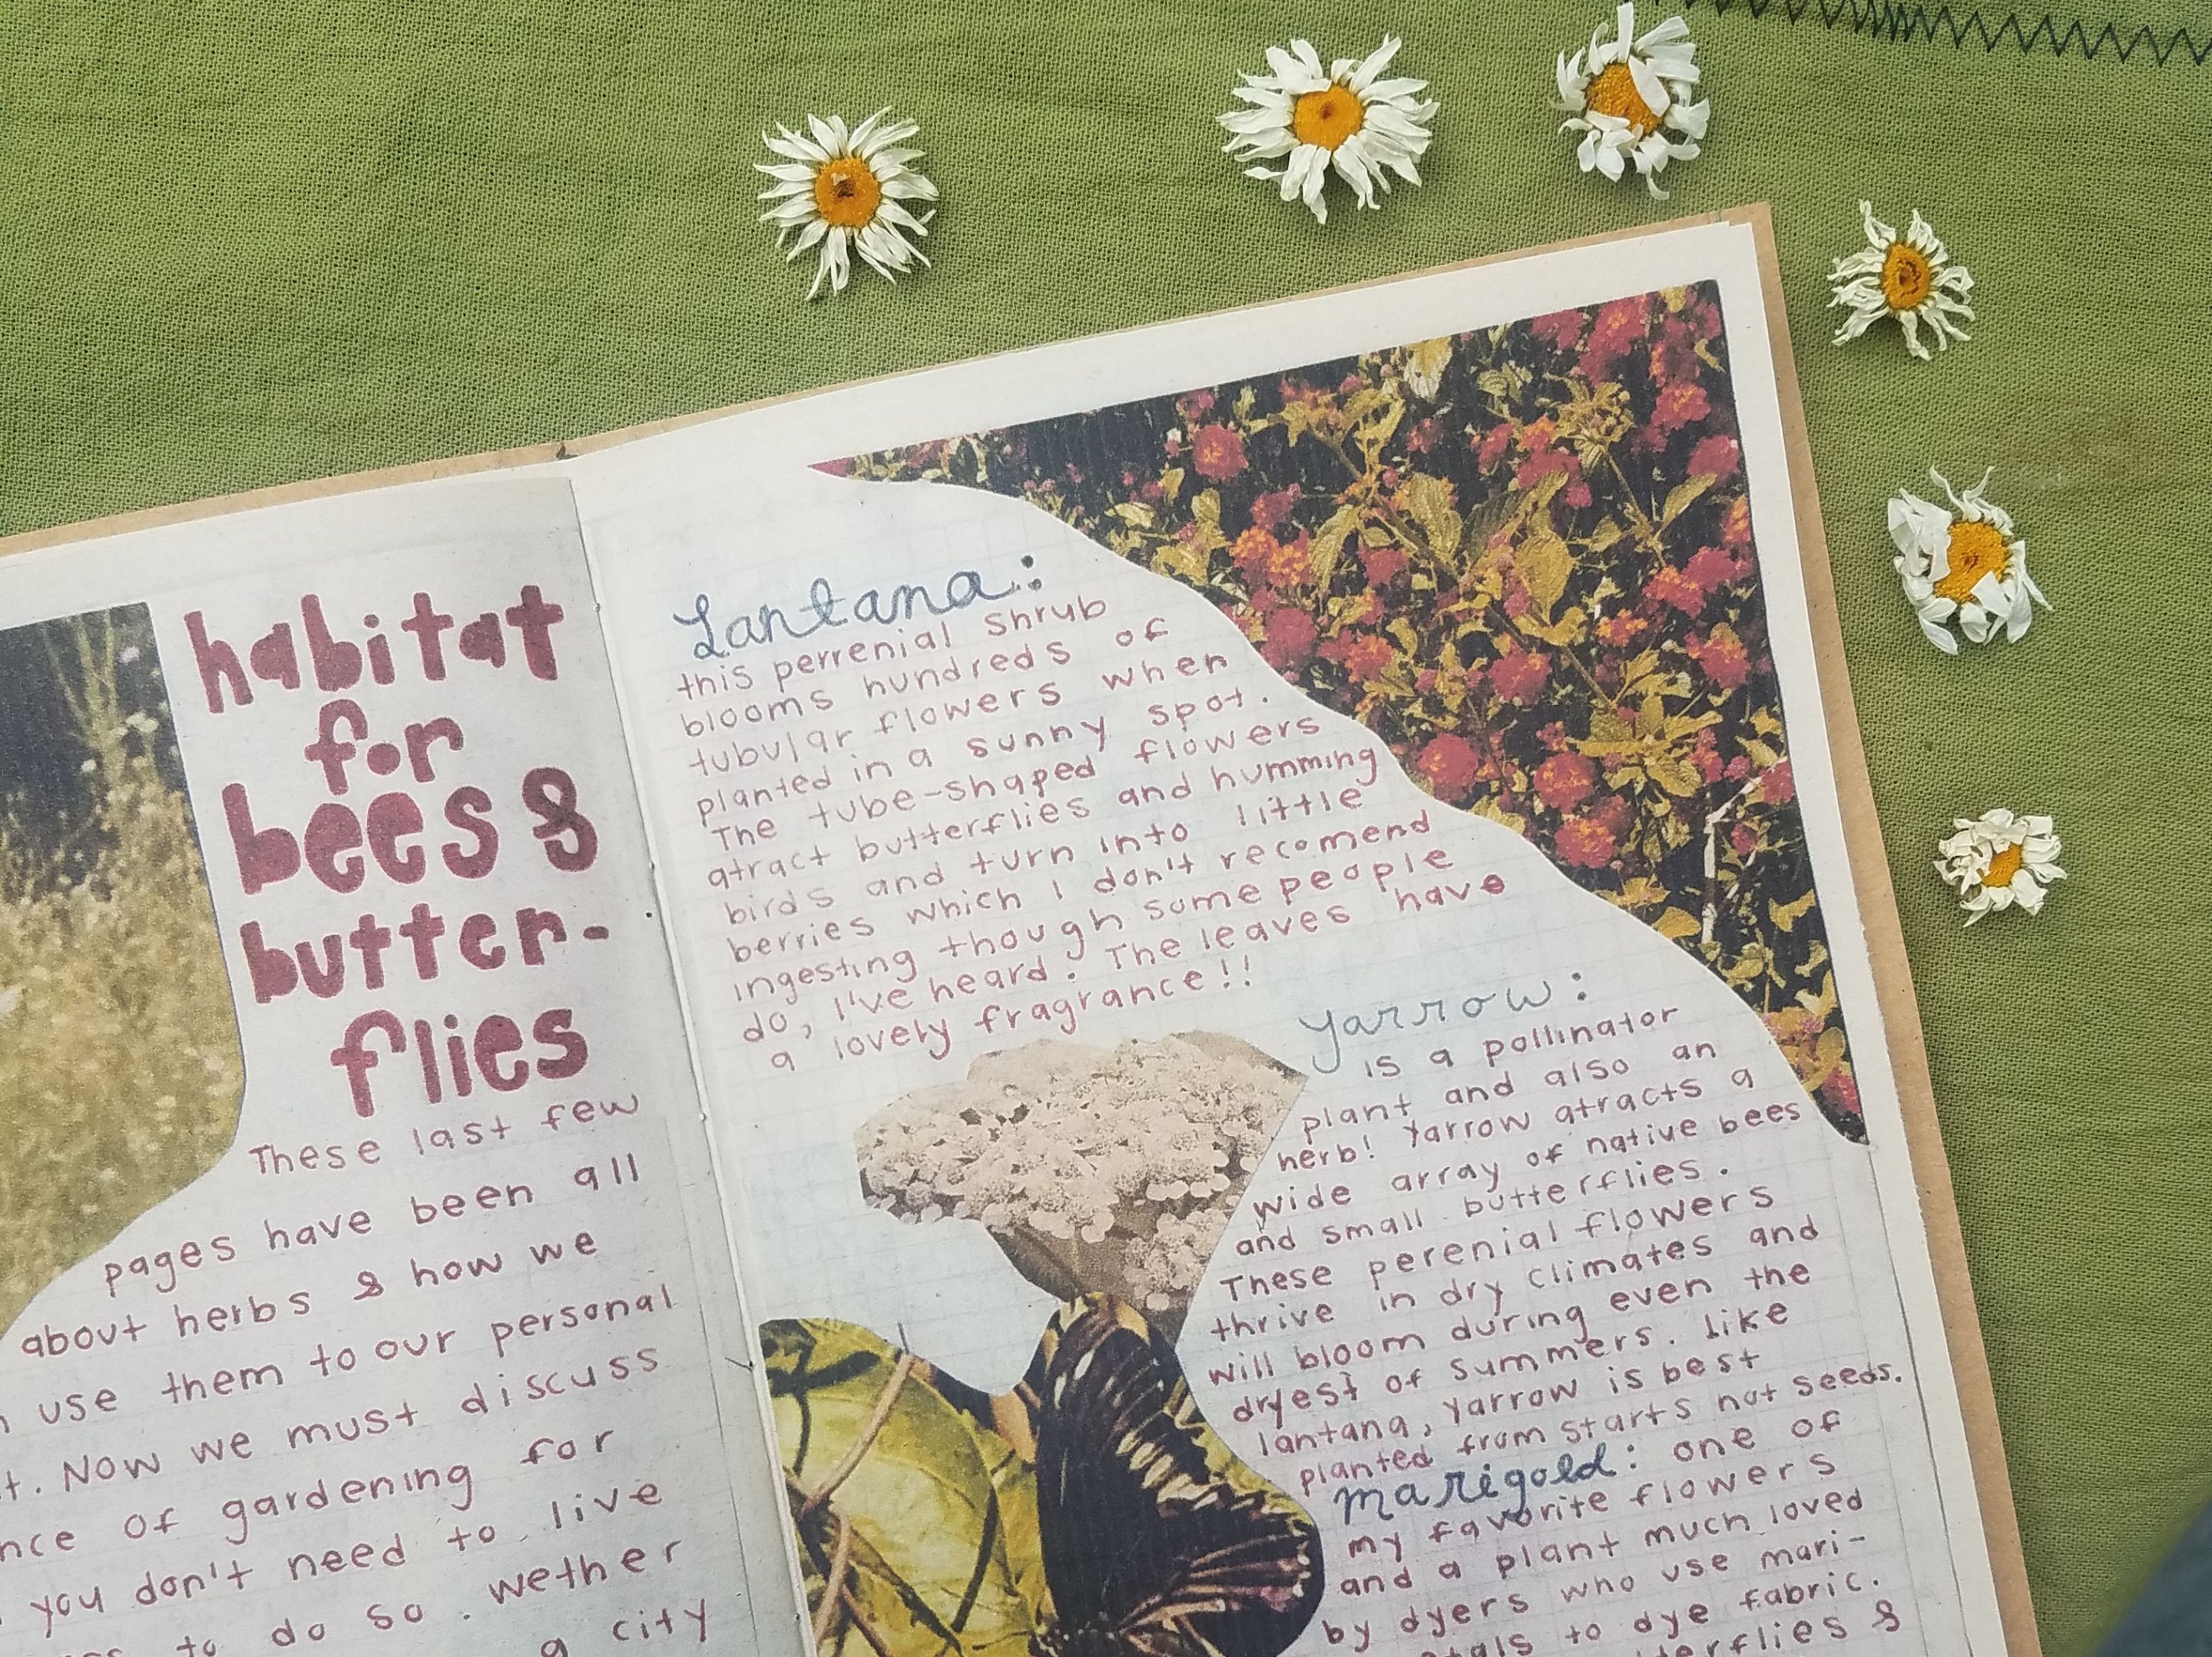 habitat
for
bees &
butter-
flies
These last few
pages have been all
about herbs & how we
use them to our personal
Now we must discuss
of gardening for
you don't need to live
to do so. wether
a city
Lantana:
this perrenial shrub
blooms hundreds of
tubular flowers when
planted in a sunny spot.
The tube-shaped flowers
atract butterflies and humming
birds and turn into little
berries which I don't recomend
ingesting though some people
do, I've heard. The leaves have
a lovely fragrance!!
yarrow:
is a pollinator
plant and also an
herb! Yarrow atracts a
wide array of native bees
and small butterflies.
These perenial flowers
thrive in dry climates and
will bloom during even the
dryest of summers. Like
lantana, yarrow is best
planted from starts not seeds.
marigold: one of
my favorite flowers
and a plant much loved
by dyers who use mari-
to dye fabric.
&